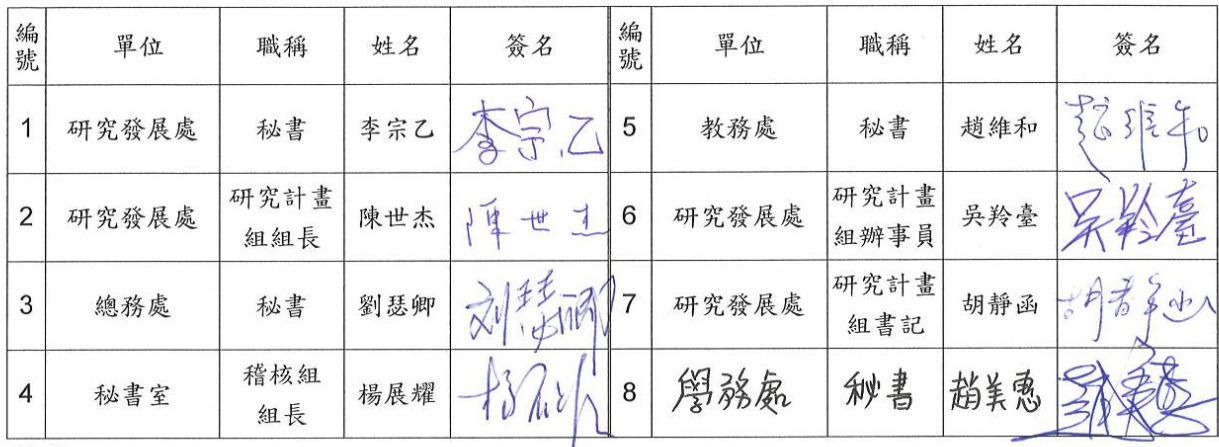 編號 單位 職稱 姓名 簽名 編號 單位 職稱 姓名 簽名
1 研究發展處 秘書 李宗乙 李宗乙 5 教務處 秘書 趙維和 趙維和
2 研究發展處 研究計畫組組長 陳世杰 陳世杰 6 研究發展處 研究計畫組辦事員 吳羚臺 吳羚臺
3 總務處 秘書 劉瑟卿 刘瑟卿 7 研究發展處 研究計畫組書記 胡靜函 胡靜函
4 秘書室 稽核組組長 楊展耀 8 學務處 秘書 趙美惠